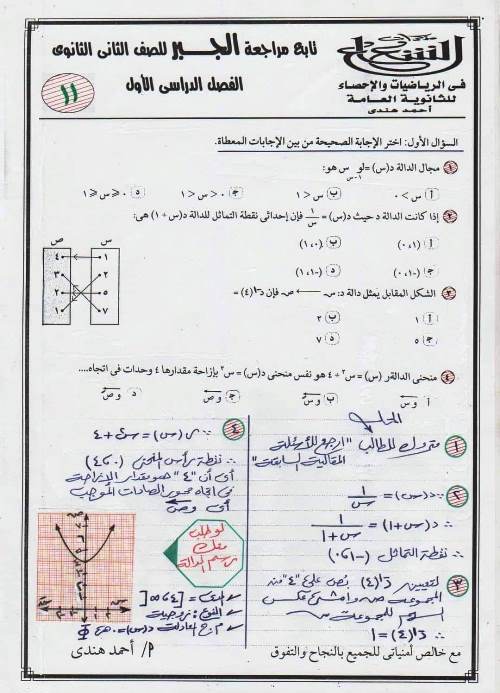 تابع مراجعة الجبر للصف الثانى الثانوى
الفصل الدراسى الأول
١١
فى الرياضيات والإحصاء
للثانوية العامة
أحمد هندى
السؤال الأول: اختر الإجابة الصحيحة من بين الإجابات المعطاة.
١ مجال الدالة د(س) = لو س هو:
١-س
أ س > ٠ ب س < ١ ج ٠ < س < ١ د ٠ ≤ س ≤ ١
٢ إذا كانت الدالة د حيث د(س) = ١/س فإن إحداثى نقطة التماثل للدالة د(س + ١) هى:
أ (٠، ١) ب (١، ٠)
ج (-١، ٠) د (٠، -١)
٣ الشكل المقابل يمثل دالة د: س ← ص فإن د-١(٤) =
أ ١ ب ٢
ج ٥ د ٧
س ص
١ ٤
٢ ٣
٥ ٢
٧ ١
٤ منحنى الدالة ر (س) = س٢ + ٤ هو نفس منحنى د(س) = س٢ بإزاحة مقدارها ٤ وحدات فى اتجاه....
أ و س ب و س ج و ص د و ص
الحل
١ متروك للطالب "ارجع للأسئلة
المقالية السابقة"
٢ ∵ د(س) = ١/س
∴ د(س+١) = ١/س+١
∴ نقطة التماثل (-١، ٠)
٣ لتعيين د-١(٤) بُص على "٤" من
المجموعة ص وامشى عكس
السهم للمجموعة س
∴ د-١(٤) = ١
٤ ∵ ر(س) = س٢ + ٤
∴ نقطة رأس المنحنى (٠، ٤)
أى أن "٤" هو مقدار الإزاحة
فى اتجاه محور الصادات الموجب
أى و ص
لو طلب
منك
رسم الدالة
المدى = [٤، ∞[
النوع: زوجية
م.ح المعادلة د(س) = ٠ هى Φ
مع خالص أمنياتى للجميع بالنجاح والتفوق
أ/ أحمد هندى